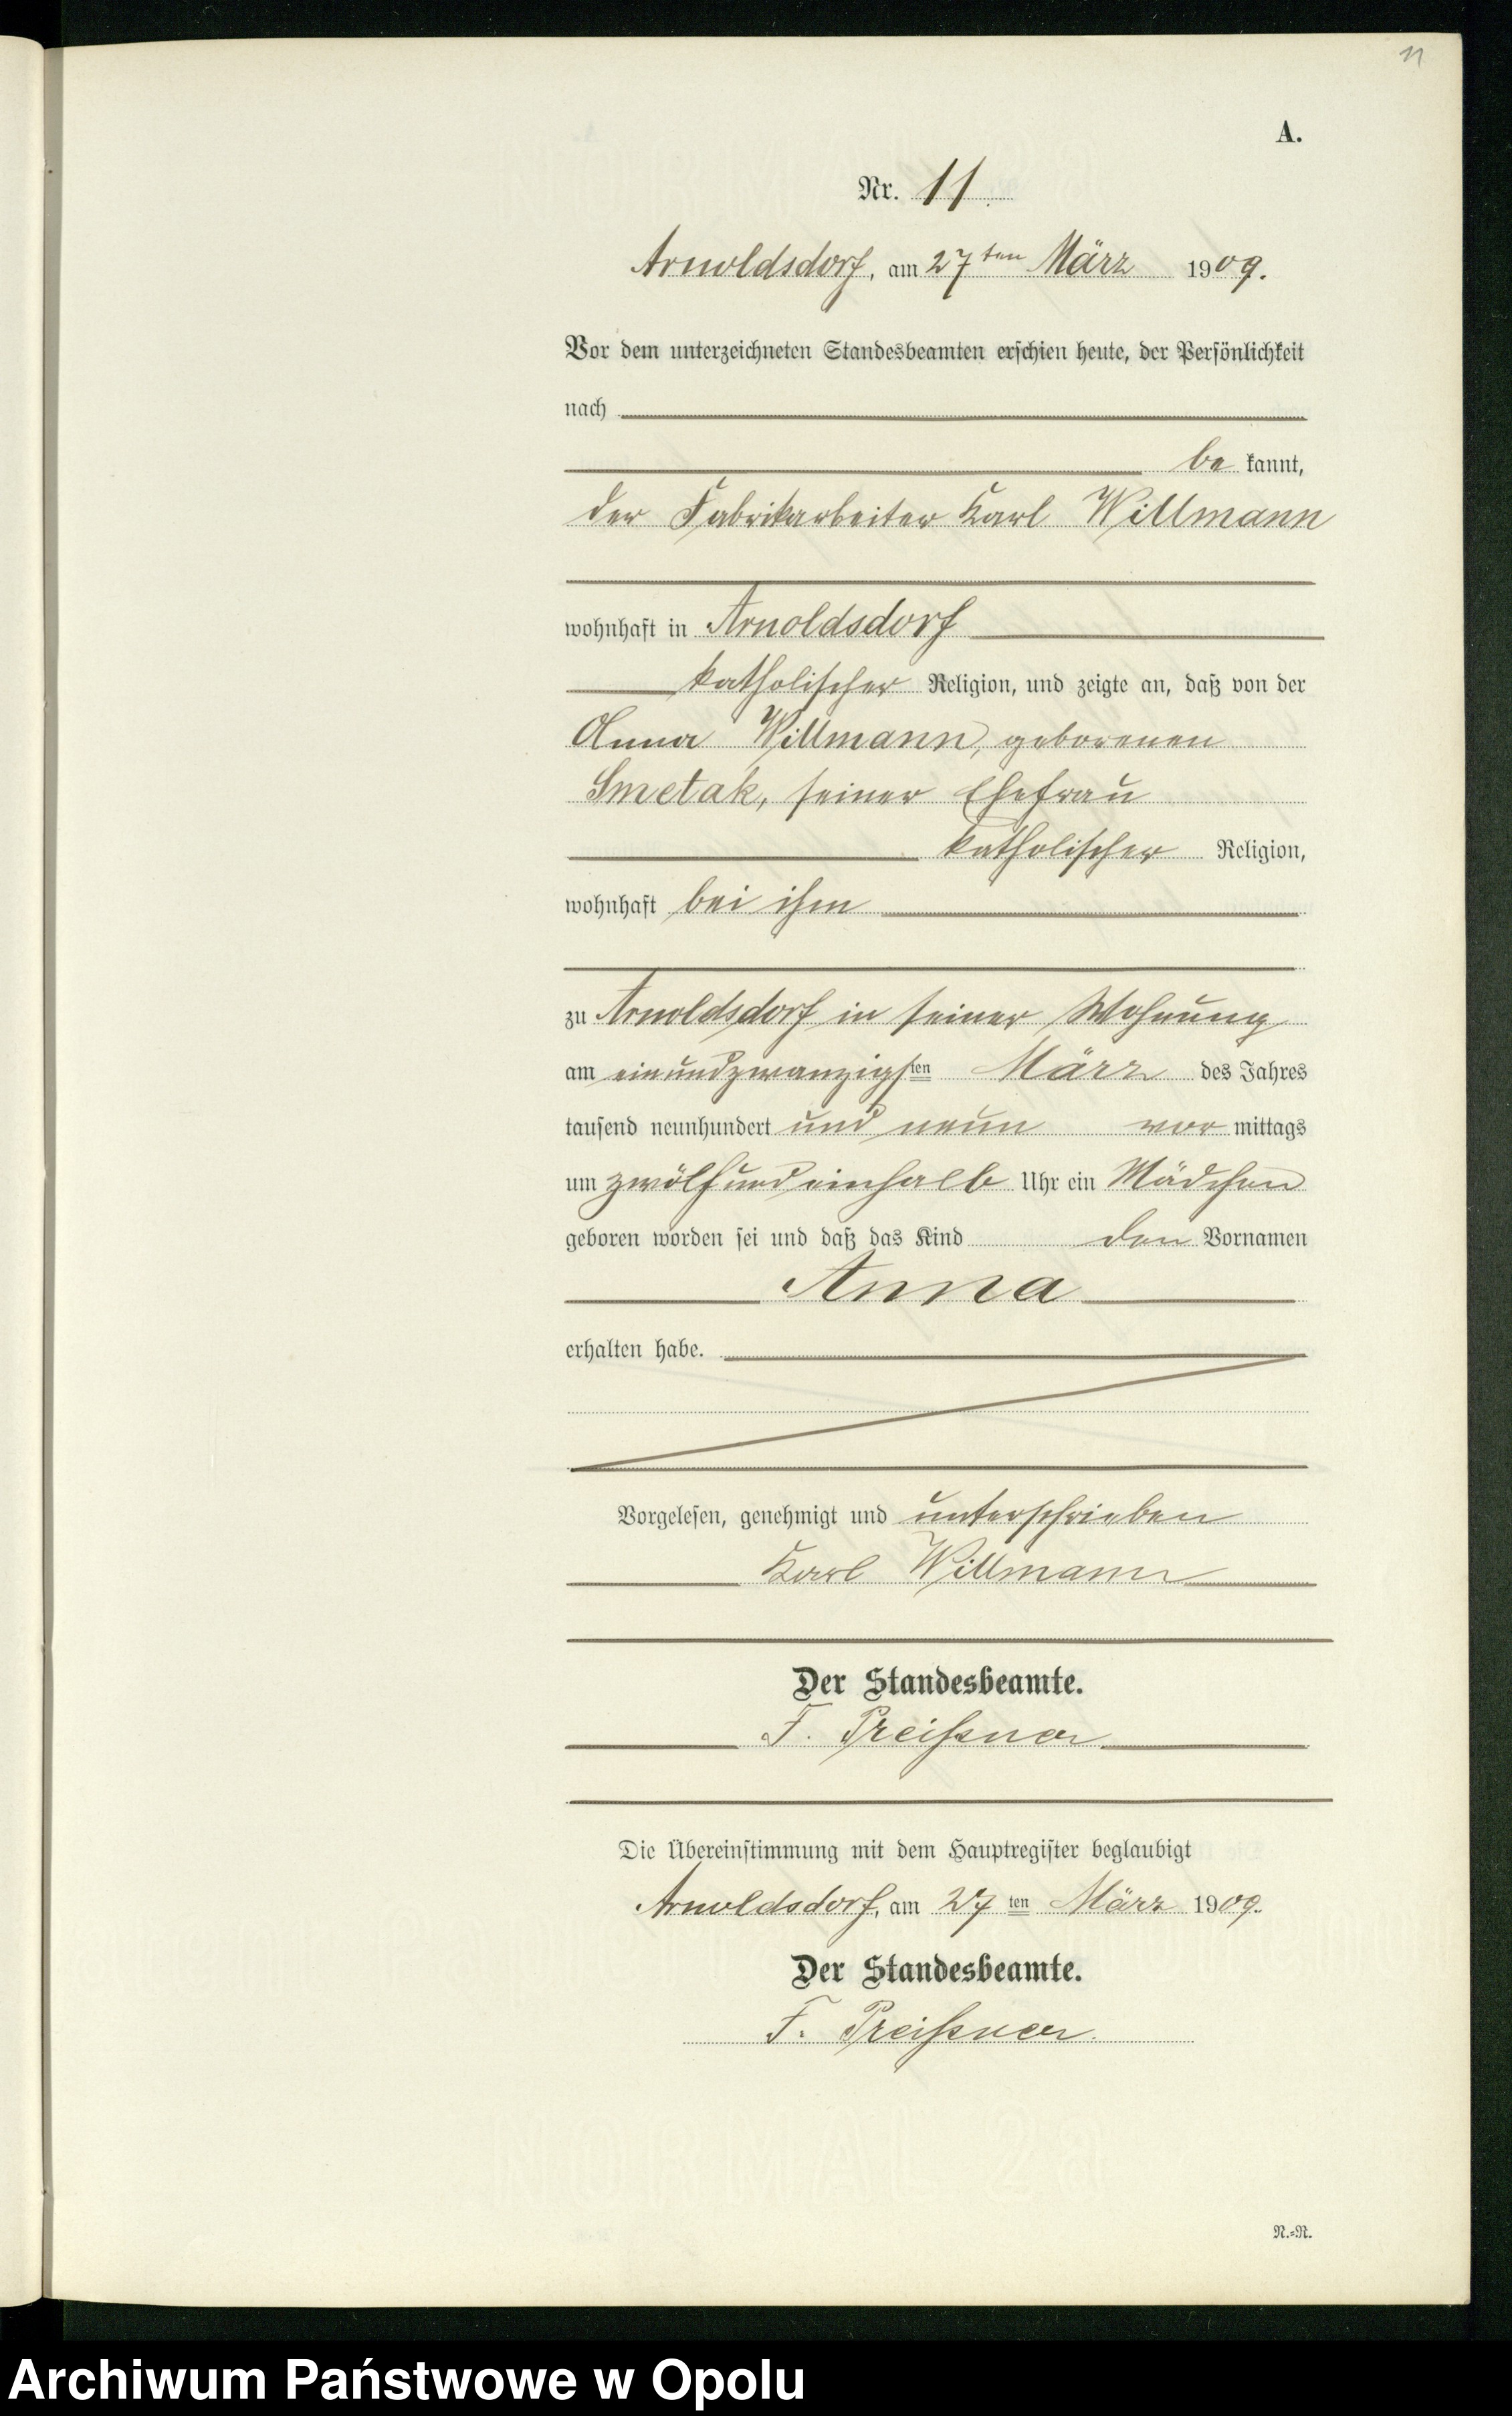 11
A.
Nr. 11
Arnoldsdorf, am 27ten März 1909.
Vor dem unterzeichneten Standesbeamten erschien heute, der Persönlichkeit
nach
be kannt,
der Fabrikarbeiter Karl Willmann
wohnhaft in Arnoldsdorf
katholischer Religion, und zeigte an, daß von der
Anna Willmann, geborenen
Smetak, seiner Ehefrau
katholischer Religion,
wohnhaft bei ihm
zu Arnoldsdorf in seiner Wohnung
am einundzwanzigsten März des Jahres
tausend neunhundert und neun vor mittags
um zwölfundeinhalb Uhr ein Mädchen
geboren worden sei und daß das Kind den Vornamen
Anna
erhalten habe.
Vorgelesen, genehmigt und unterschrieben
Karl Willmann
Der Standesbeamte.
F. Preißner
Die Übereinstimmung mit dem Hauptregister beglaubigt
Arnoldsdorf, am 27 ten März 1909.
Der Standesbeamte.
F. Preißner.
N.=N.
Archiwum Państwowe w Opolu